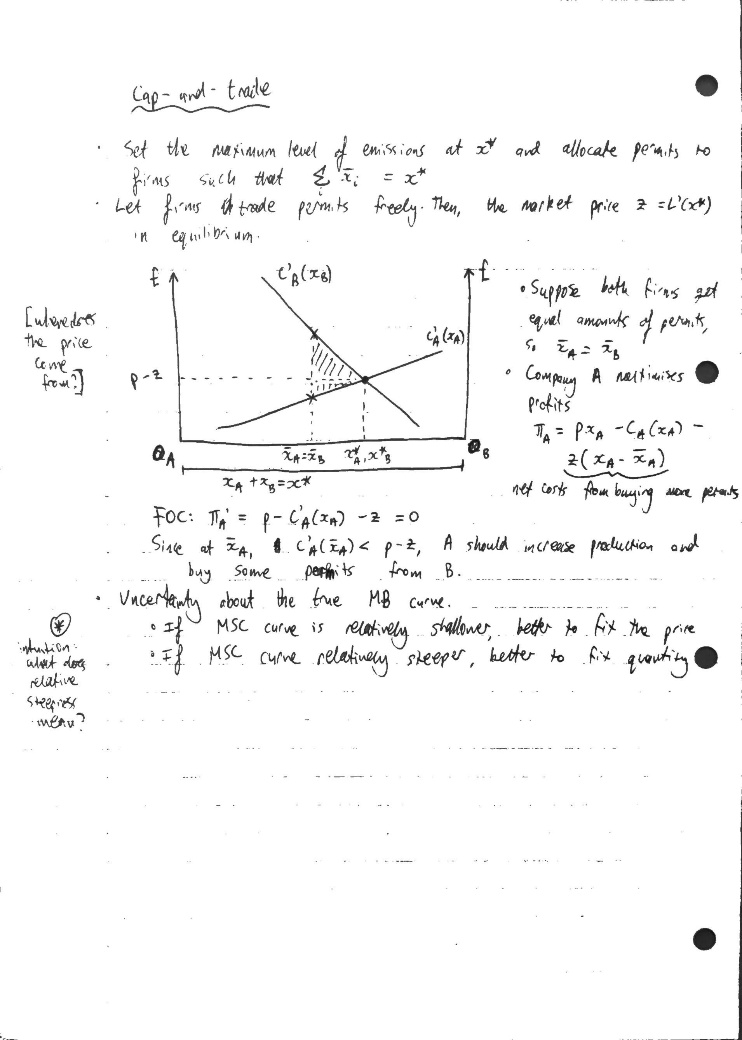 Cap-and-trade
· Set the maximum level of emissions at x* and allocate permits to
firms such that Σ x̄ᵢ = x*
i
· Let firms trade permits freely. Then, the market price z = L'(x*)
in equilibrium.
£
C'B(xB)
£
C'A(xA)
[where does
the price
come
from?]
p-z
0A
x̄A=x̄B
x*A, x*B
0B
xA + xB = x*
∘ Suppose both firms get
equal amounts of permits,
so x̄A = x̄B
∘ Company A maximises
profits
πA = pxA - CA(xA) -
z(xA - x̄A)
net costs from buying more permits
FOC: πA' = p - C'A(xA) - z = 0
Since at x̄A, C'A(x̄A) < p-z, A should increase production and
buy some permits from B.
· Uncertainty about the true MB curve.
∘ If MSC curve is relatively shallower, better to fix the price
∘ If MSC curve relatively steeper, better to fix quantity
*
intuition:
what does
relative
steepness
mean?